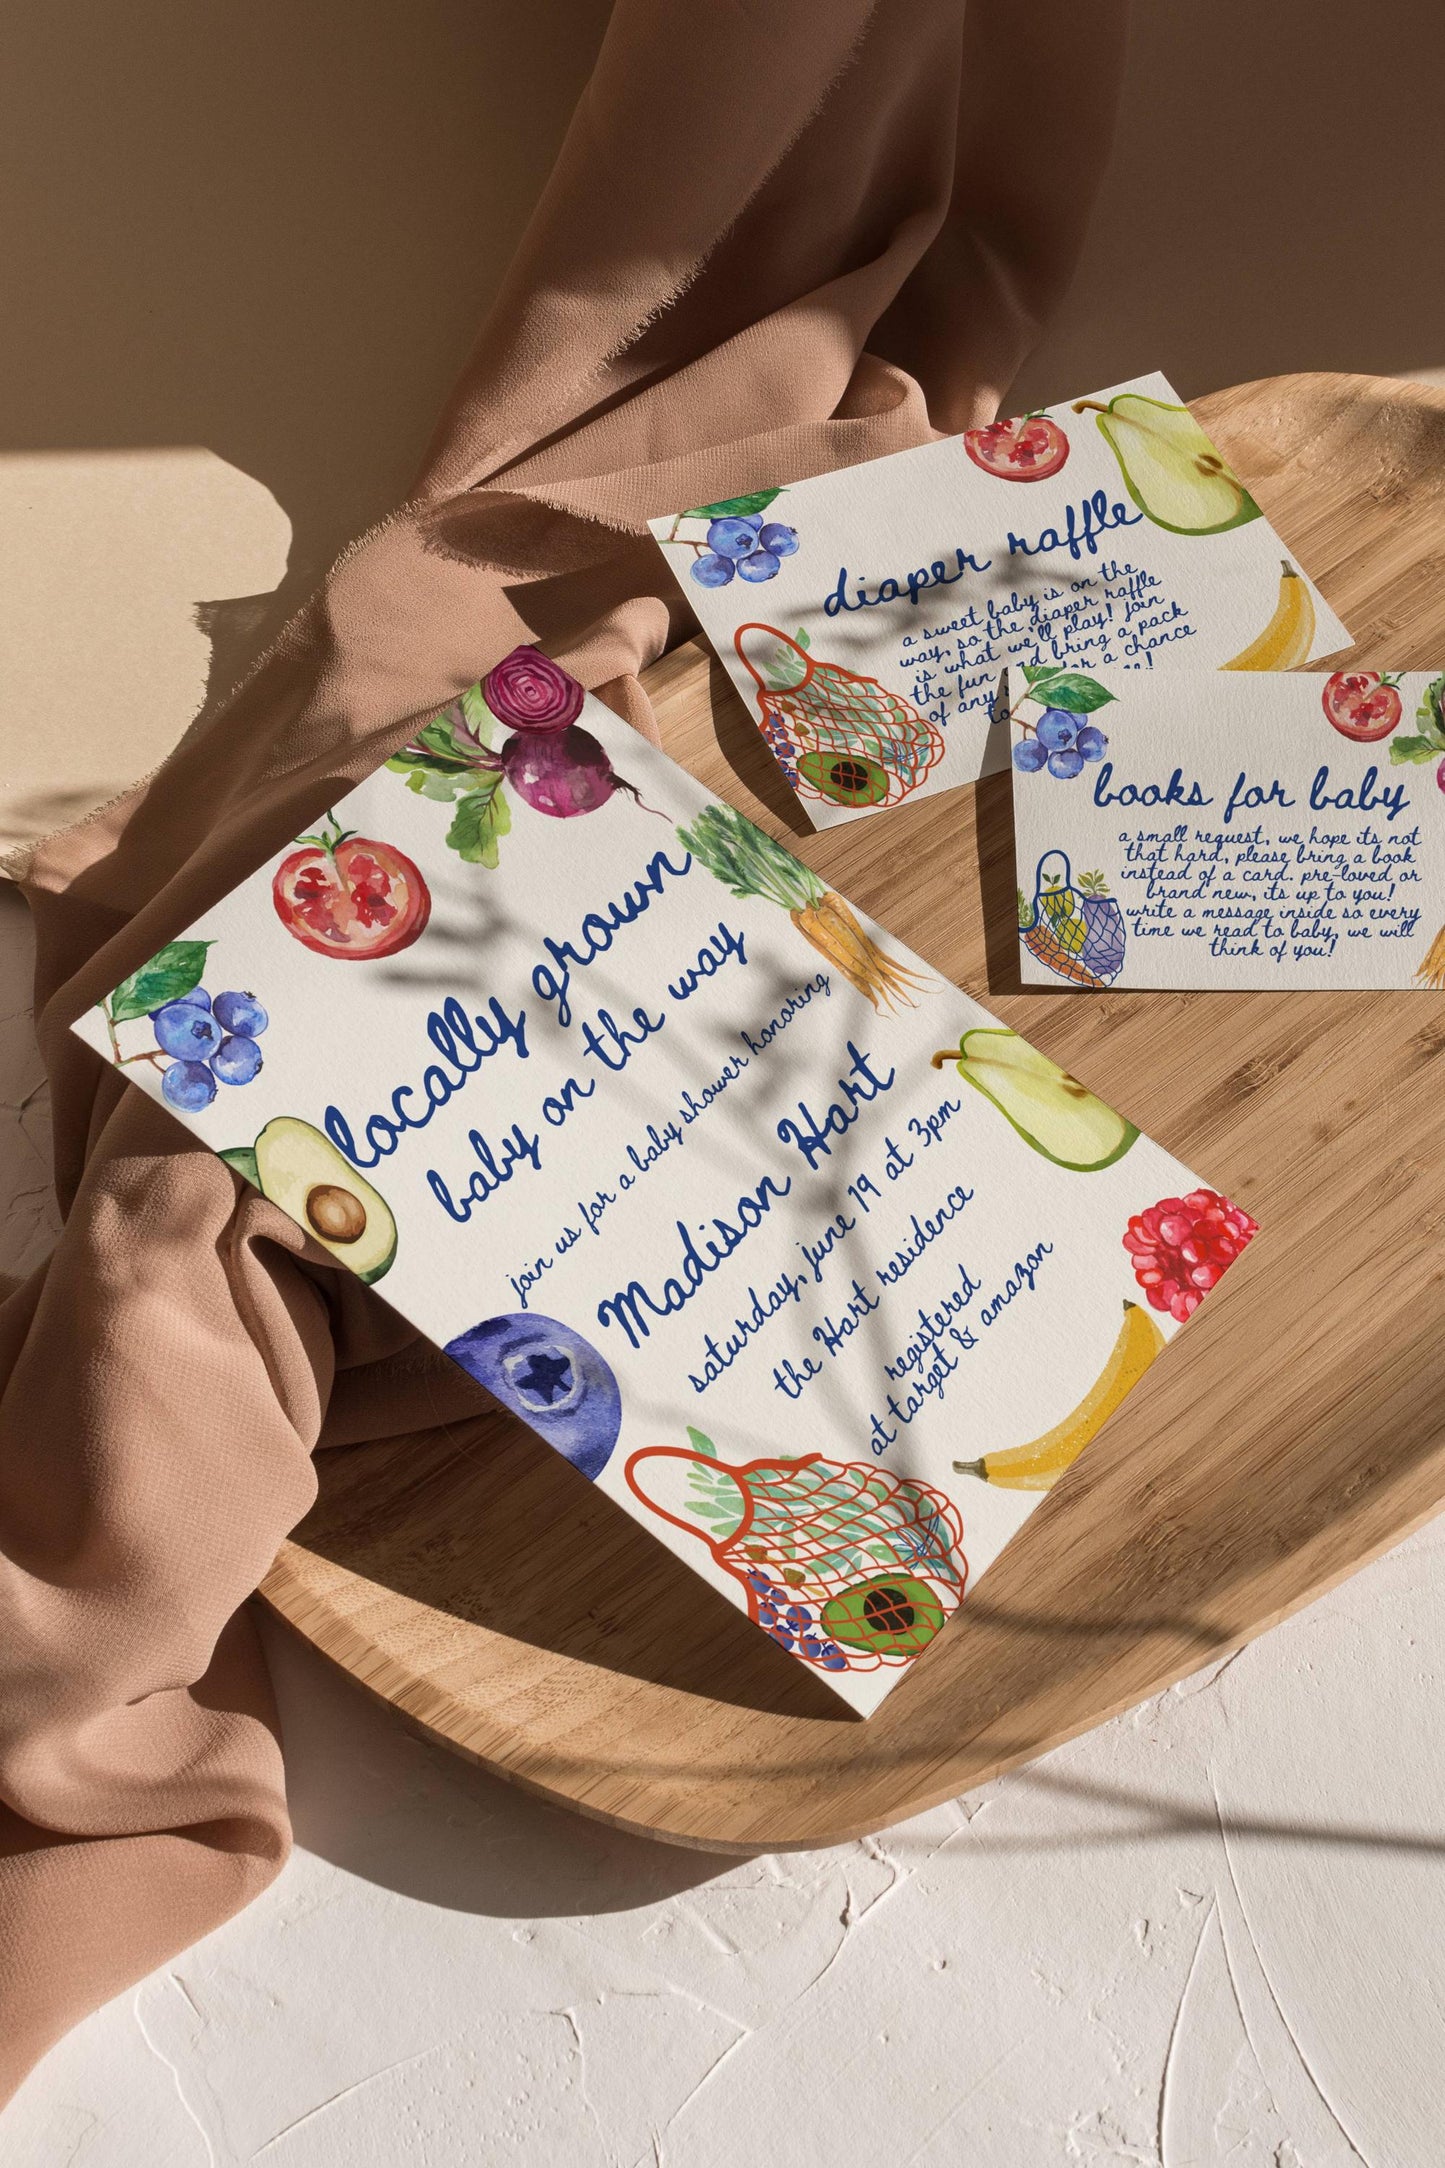 locally grown
baby on the way
join us for a baby shower honoring
Madison Hart
saturday, june 19 at 3pm
the Hart residence
registered
at target & amazon
diaper raffle
a sweet baby is on the
way, so the diaper raffle
is what we'll play! join
the fun and bring a pack
of any for a chance
to
books for baby
a small request, we hope its not
that hard, please bring a book
instead of a card. pre-loved or
brand new, its up to you!
write a message inside so every
time we read to baby, we will
think of you!